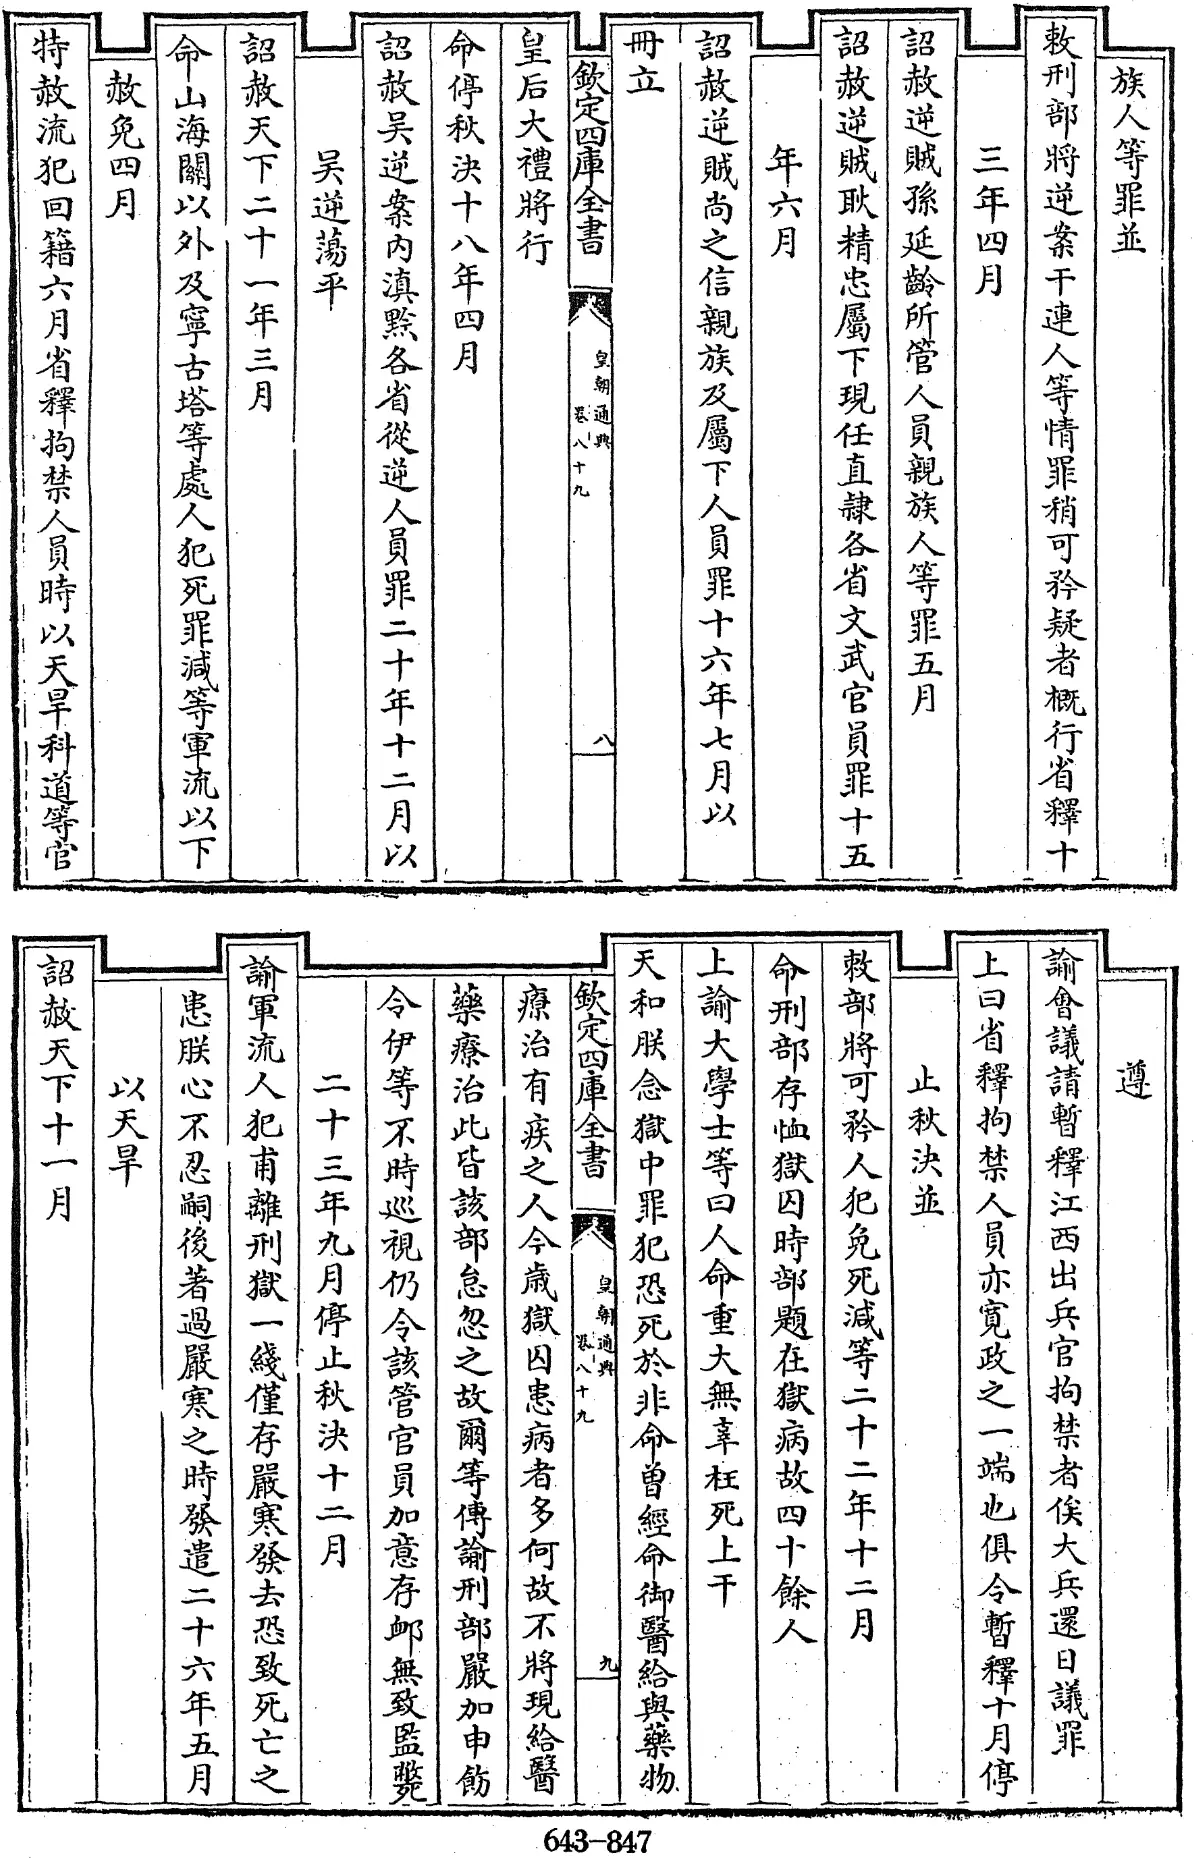 族人等罪並
敕刑部將逆案干連人等情罪稍可矜疑者概行省釋十
三年四月
詔赦逆賊孫延齡所管人員親族人等罪五月
詔赦逆賊耿精忠屬下現任直隷各省文武官員罪十五
年六月
詔赦逆賊尚之信親族及屬下人員罪十六年七月以
冊立
欽定四庫全書
皇朝通典
卷八十九
八
皇后大禮將行
命停秋決十八年四月
詔赦吳逆案內滇黔各省從逆人員罪二十年十二月以
吴逆蕩平
詔赦天下二十一年三月
命山海關以外及寧古塔等處人犯死罪減等軍流以下
赦免四月
特赦流犯回籍六月省釋拘禁人員時以天旱科道等官
遵
諭會議請暫釋江西出兵官拘禁者俟大兵還日議罪
上曰省釋拘禁人員亦寛政之一端也俱令暫釋十月停
止秋決並
敕部將可矜人犯免死減等二十二年十二月
命刑部存恤獄囚時部題在獄病故四十餘人
上諭大學士等曰人命重大無辜枉死上干
天和朕念獄中罪犯恐死於非命曽經命御醫給與藥物
欽定四庫全書
皇朝通典
卷八十九
九
療治有疾之人今歳獄囚患病者多何故不將現給醫
藥療治此皆該部怠忽之故爾等傳諭刑部嚴加申飭
令伊等不時巡視仍令該管官員加意存卹無致監斃
二十三年九月停止秋決十二月
諭軍流人犯甫離刑獄一綫僅存嚴寒發去恐致死亡之
患朕心不忍嗣後著過嚴寒之時發遣二十六年五月
以天旱
詔赦天下十一月
643-847